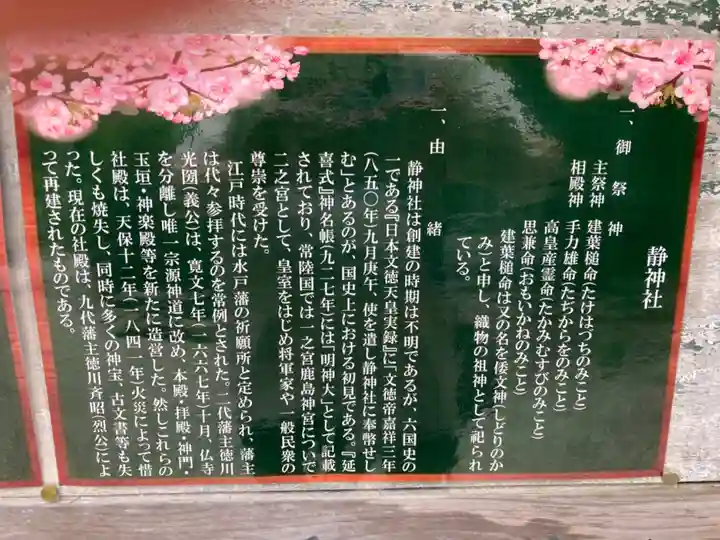 静神社
一、御祭神
主祭神 建葉槌命(たけはづちのみこと)
相殿神 手力雄命(たちからをのみこと)
高皇産霊命(たかみむすびのみこと)
思兼命(おもいかねのみこと)
建葉槌命は又の名を倭文神(しどりのか
み)と申し、織物の祖神として祀られ
ている。
一、由緒
静神社は創建の時期は不明であるが、六国史の
一である『日本文徳天皇実録』に『文徳帝嘉祥三年
(八五〇年)九月庚午、使を遣し静神社に奉幣せし
む」とあるのが、国史上における初見である。『延
喜式』神名帳(九二七年)には「明神大」として記載
されており、常陸国では一之宮鹿島神宮について
二之宮として、皇室をはじめ将軍家や一般民衆の
尊崇を受けた。
江戸時代には水戸藩の祈願所と定められ、藩主
は代々参拝するのを常例とされた。二代藩主徳川
光圀(義公)は、寛文七年(一六六七年)十月、仏寺
を分離し唯一宗源神道に改め、本殿・拝殿・神門・
玉垣・神楽殿等を新たに造営した。然しこれらの
社殿は、天保十二年(一八四一年)火災によって惜
しくも焼失し、同時に多くの神宝、古文書等も失
った。現在の社殿は、九代藩主徳川斉昭(烈公)によ
って再建されたものである。